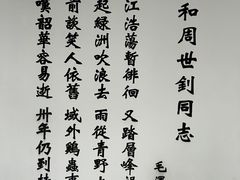 和周世釗同志
毛澤
江浩蕩暫徘徊 又踏層峰
起綠洲吹浪去 雨從青野
前談笑人依舊 域外鷄蟲
嘆韶華容易逝 卅年仍到